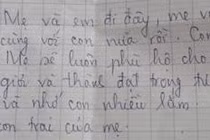 Mẹ và em đi đây, mẹ v
cùng với con nữa rồi. Con
Mẹ sẽ luôn phù hộ cho
giỏi và thành đạt trong tư
và nhớ con nhiều lắm
con trai của mẹ.